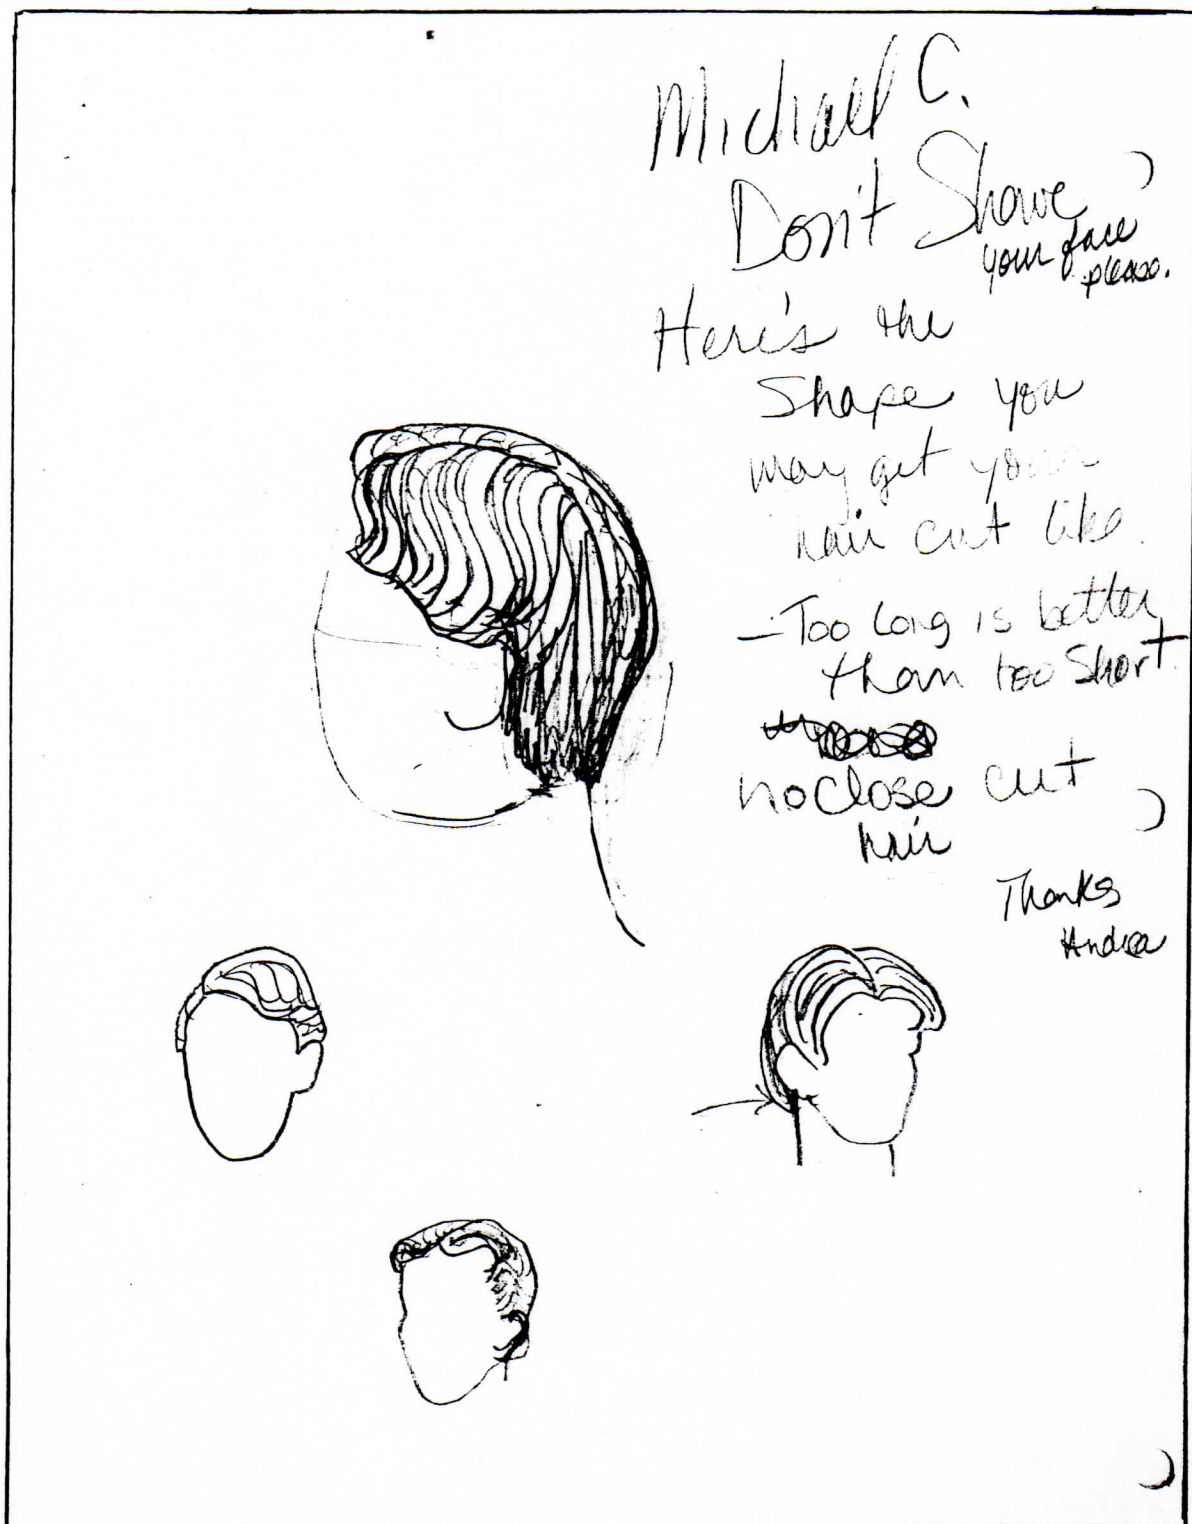 Michael C.
Don't Shave
your face
please.
Here's the
Shape you
may get your
hair cut like.
- Too Long is better
than too Short.
no close cut
hair
Thanks
Andrea